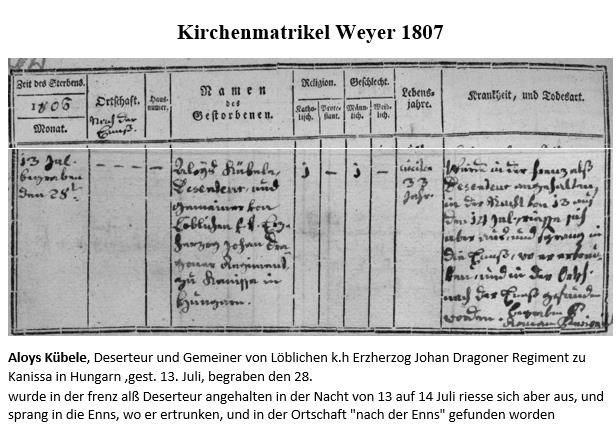 Kirchenmatrikel Weyer 1807
Zeit des Sterbens.
1806
Monat.
Ortschaft.
Nach der
Ennß.
Haus-
numer.
Namen
des
Gestorbenen.
Religion.
Katho-
lisch.
Prote-
stant.
Geschlecht.
Männ-
lich.
Weib-
lich.
Lebens-
jahre.
Krankheit, und Todesart.
13 Jul.
begraben
den 28t
Aloys Kübele,
Deserteur, und
Gemeiner von
Löblichen k.k. Erz-
herzog Johan Dra-
goner Regiment
zu Kanissa in
Hungarn.
1
1
33
Jahr
Wurde in der frenz alß
Deserteur angehalten,
in der Nacht von 13 auf
den 14 Jul. riesse sich
aber aus, und sprang in
die Ennß, wo er ertrun-
ken, und in der Ortsch.
nach der Ennß gefunden
worden. begraben
Roman
Aloys Kübele, Deserteur und Gemeiner von Löblichen k.h Erzherzog Johan Dragoner Regiment zu
Kanissa in Hungarn ,gest. 13. Juli, begraben den 28.
wurde in der frenz alß Deserteur angehalten in der Nacht von 13 auf 14 Juli riesse sich aber aus, und
sprang in die Enns, wo er ertrunken, und in der Ortschaft "nach der Enns" gefunden worden